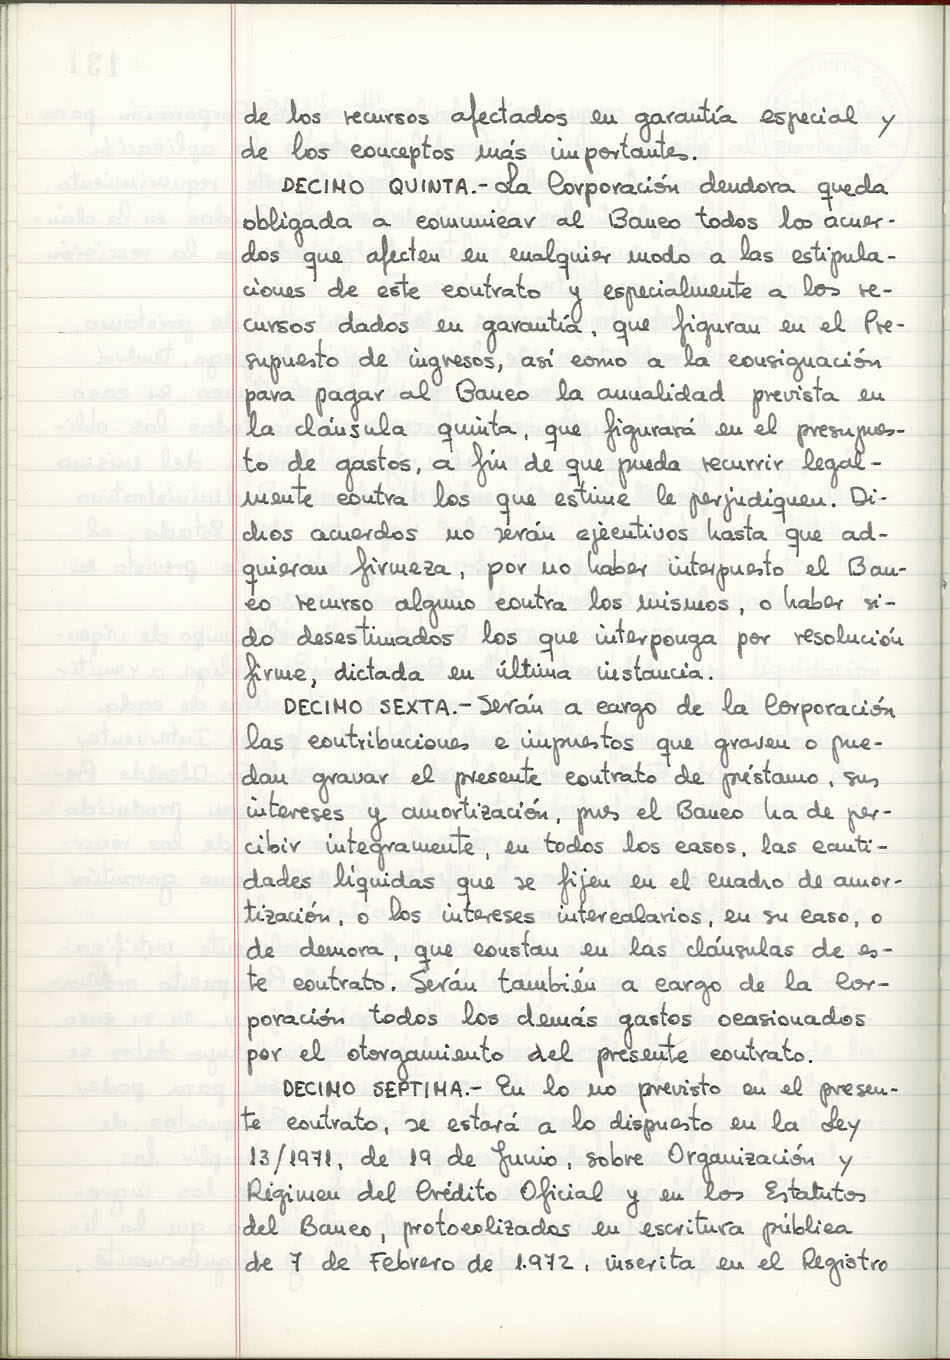 de los recursos afectados en garantía especial y
de los conceptos más importantes.
DECIMO QUINTA.- La Corporación deudora queda
obligada a comunicar al Banco todos los acuer-
dos que afecten en cualquier modo a las estipula-
ciones de este contrato y especialmente a los re-
cursos dados en garantía, que figuran en el Pre-
supuesto de ingresos, así como a la consignación
para pagar al Banco la anualidad prevista en
la cláusula quinta, que figurará en el presupues-
to de gastos, a fín de que pueda recurrir legal-
mente contra los que estime le perjudiquen. Di-
chos acuerdos no serán ejecutivos hasta que ad-
quieran firmeza, por no haber interpuesto el Ban-
co recurso alguno contra los mismos, o haber si-
do desestimados los que interponga por resolución
firme, dictada en última instancia.
DECIMO SEXTA.- Serán a cargo de la Corporación
las contribuciones e impuestos que graven o pue-
dan gravar el presente contrato de préstamo, sus
intereses y amortización, pues el Banco ha de per-
cibir integramente, en todos los casos, las canti-
dades líquidas que se fijen en el cuadro de amor-
tización, o los intereses intercalarios, en su caso, o
de demora, que constan en las cláusulas de es-
te contrato. Serán también a cargo de la Cor-
poración todos los demás gastos ocasionados
por el otorgamiento del presente contrato.
DECIMO SEPTIMA.- En lo no previsto en el presen-
te contrato, se estará a lo dispuesto en la Ley
13/1971, de 19 de Junio, sobre Organización y
Régimen del Crédito Oficial y en los Estatutos
del Banco, protocolizados en escritura pública
de 7 de Febrero de 1.972, inscrita en el Registro